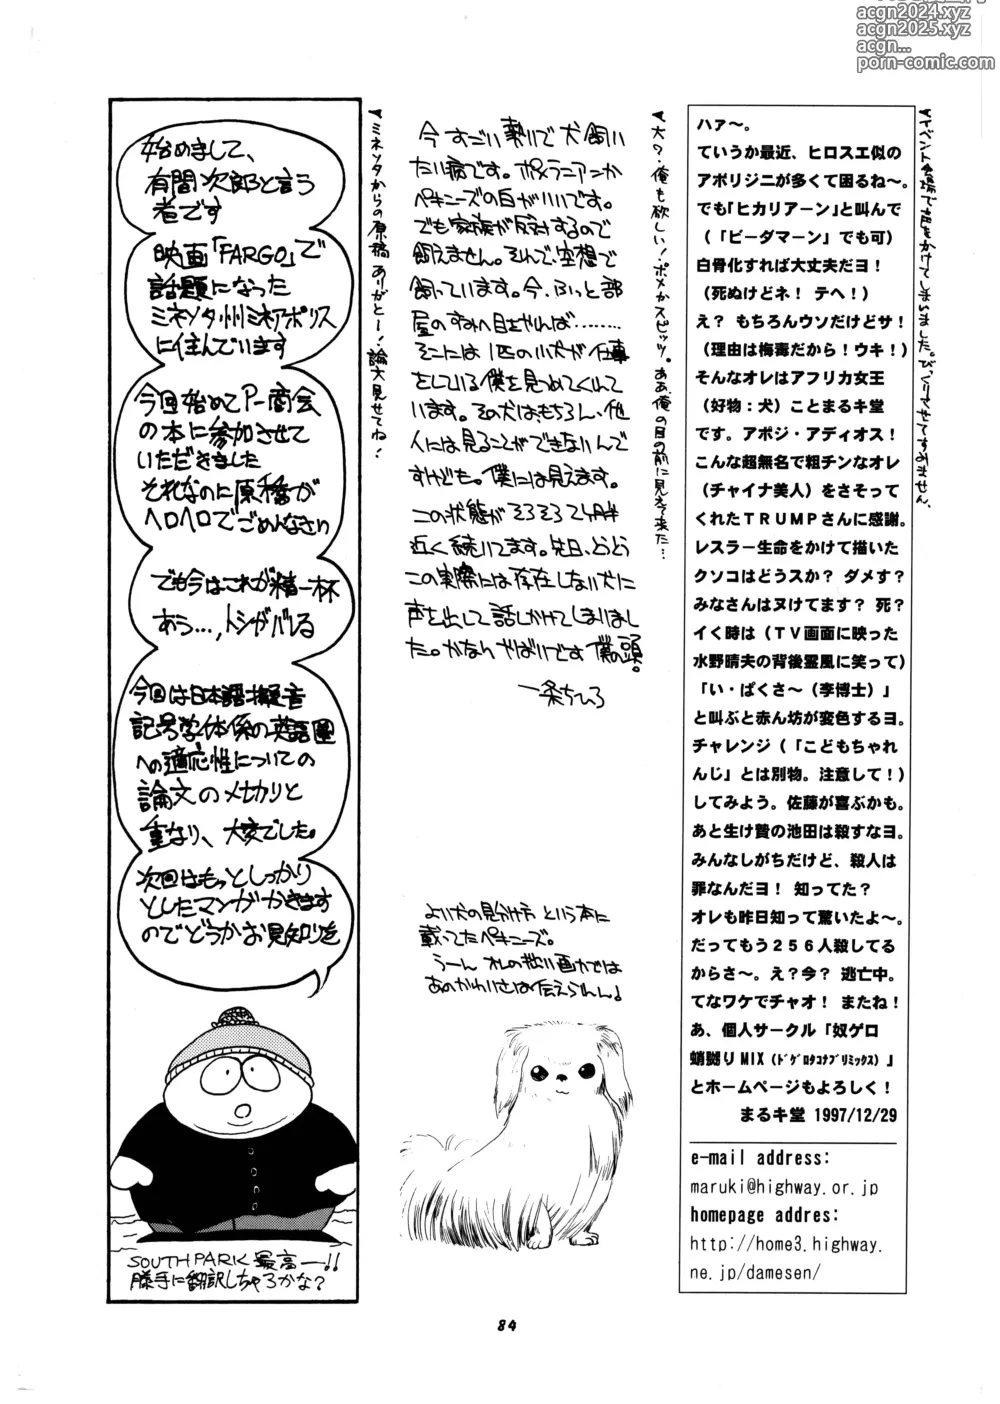 acgn2024.xyz
acgn2025.xyz
acgn...
porn-comic.com
▼イベント会場で声をかけてしまいました。びっくりさせてすみません。
ハァ〜。
ていうか最近、ヒロスエ似の
アボリジニが多くて困るね〜。
でも「ヒカリアーン」と叫んで
(「ビーダマーン」でも可)
白骨化すれば大丈夫だヨ!
(死ぬけどネ! テヘ!)
え? もちろんウソだけどサ!
(理由は梅毒だから!ウキ!)
そんなオレはアフリカ女王
(好物:犬)ことまるキ堂
です。アポジ・アディオス!
こんな超無名で粗チンなオレ
(チャイナ美人)をさそって
くれたTRUMPさんに感謝。
レスラー生命をかけて描いた
クソコはどうスか? ダメす?
みなさんはヌけてます? 死?
イく時は(TV画面に映った
水野晴夫の背後霊風に笑って)
「い・ぱくさ〜(李博士)」
と叫ぶと赤ん坊が変色するヨ。
チャレンジ(「こどもちゃれ
んじ」とは別物。注意して!)
してみよう。佐藤が喜ぶかも。
あと生け贄の池田は殺すなヨ。
みんなしがちだけど、殺人は
罪なんだヨ! 知ってた?
オレも昨日知って驚いたよ〜。
だってもう256人殺してる
からさ〜。え?今? 逃亡中。
てなワケでチャオ! またね!
あ、個人サークル「奴ゲロ
蛸嬲りMIX(ドゲロタコナブリミックス)」
とホームページもよろしく!
まるキ堂 1997/12/29
e-mail address:
maruki@highway.or.jp
homepage addres:
http://home3.highway.
ne.jp/damesen/
▼犬?俺も欲しい!ポメかスピッツ。ああ、俺の目の前に見えて来た…
今すごい勢いで犬飼い
たい病です。ポメラニアンか
ペキニーズの白がいいです。
でも家族が反対するので
飼えません。そんで、空想で
飼っています。今、ふっと部
屋のすみへ目をやれば………
そこには1匹の小犬が仕事
をしている僕を見つめてくれて
います。その犬は、もちろん、他
人には見ることができないんで
すけども。僕には見えます。
この状態がそろそろ2ヶ月半
近く続いてます。先日、とうとう
この実際には存在しない犬に
声を出して話しかけてしまいまし
た。かなりやばいです僕の頭。
一条ちひろ
よい犬の見分け方という本に
載ってたペキニーズ。
うーん オレの拙い画力では
あのかわいさは伝えられん♩
▼ミネソタからの原稿ありがとー!論文見せてね!
始めまして、
有間次郎と言う
者です
映画「FARGO」で
話題になった
ミネソタ州ミネアポリス
に住んでいます
今回始めてアー商会
の本に参加させて
いただきました
それなのに原稿が
ヘロヘロでごめんなさい
でも今はこれが精一杯
あう…,トシがバレる
今回は日本語擬音
記号学体係の英語圏
への適応性についての
論文のメ切りと
重なり、大変でした。
次回はもっとしっかり
としたマンガかきます
のでどうかお見知りを
SOUTHPARK 最高ー!!
勝手に翻訳しちゃろかな?
84